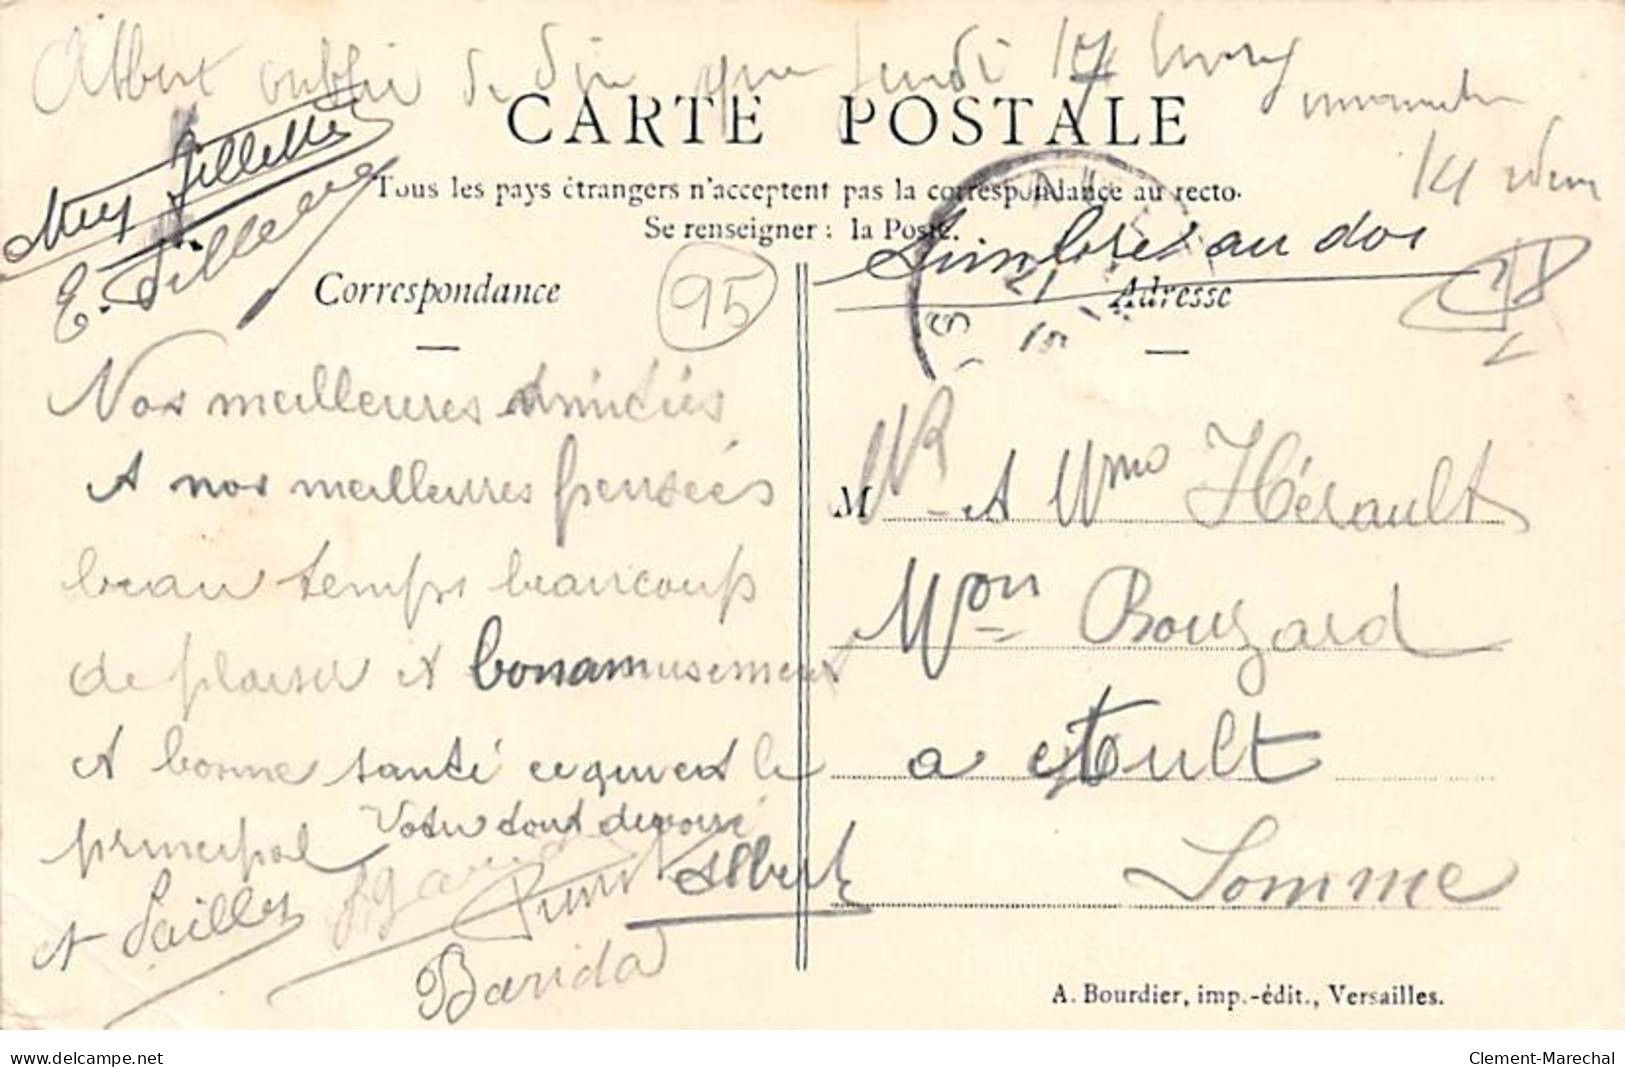 Albert oublie de dire que Jeudi 17
14
CARTE POSTALE
Tous les pays étrangers n'acceptent pas la correspondance au recto.
Se renseigner : la Poste.
Timbres au dos
Correspondance
95
Adresse
Nos meilleures amitiés
et nos meilleures pensées
beau temps beaucoup
de plaisir et bon amusement
et bonne santé ce qui est le
principal
Votre tout devoué
Albert
Barida
M Mr et Mme Hérault
Mon Bouzard
a Ault
Somme
A. Bourdier, imp.-édit., Versailles.
www.delcampe.net
Clement-Marechal